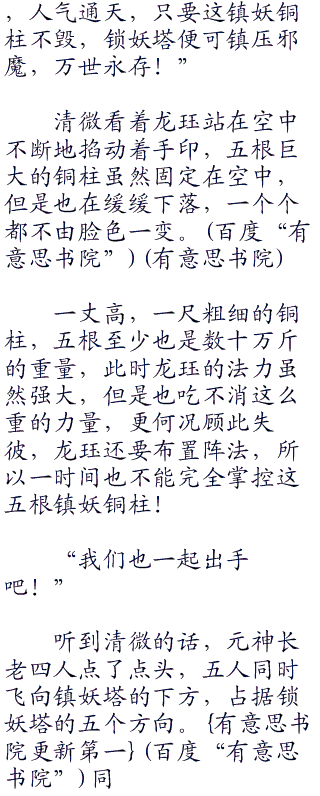 ，人气通天，只要这镇妖铜
柱不毁，锁妖塔便可镇压邪
魔，万世永存！”
清微看着龙珏站在空中
不断地掐动着手印，五根巨
大的铜柱虽然固定在空中，
但是也在缓缓下落，一个个
都不由脸色一变。(百度“有
意思书院”)(有意思书院)
一丈高，一尺粗细的铜
柱，五根至少也是数十万斤
的重量，此时龙珏的法力虽
然强大，但是也吃不消这么
重的力量，更何况顾此失
彼，龙珏还要布置阵法，所
以一时间也不能完全掌控这
五根镇妖铜柱！
“我们也一起出手
吧！”
听到清微的话，元神长
老四人点了点头，五人同时
飞向镇妖塔的下方，占据锁
妖塔的五个方向。{有意思书
院更新第一}(百度“有意思
书院”)同